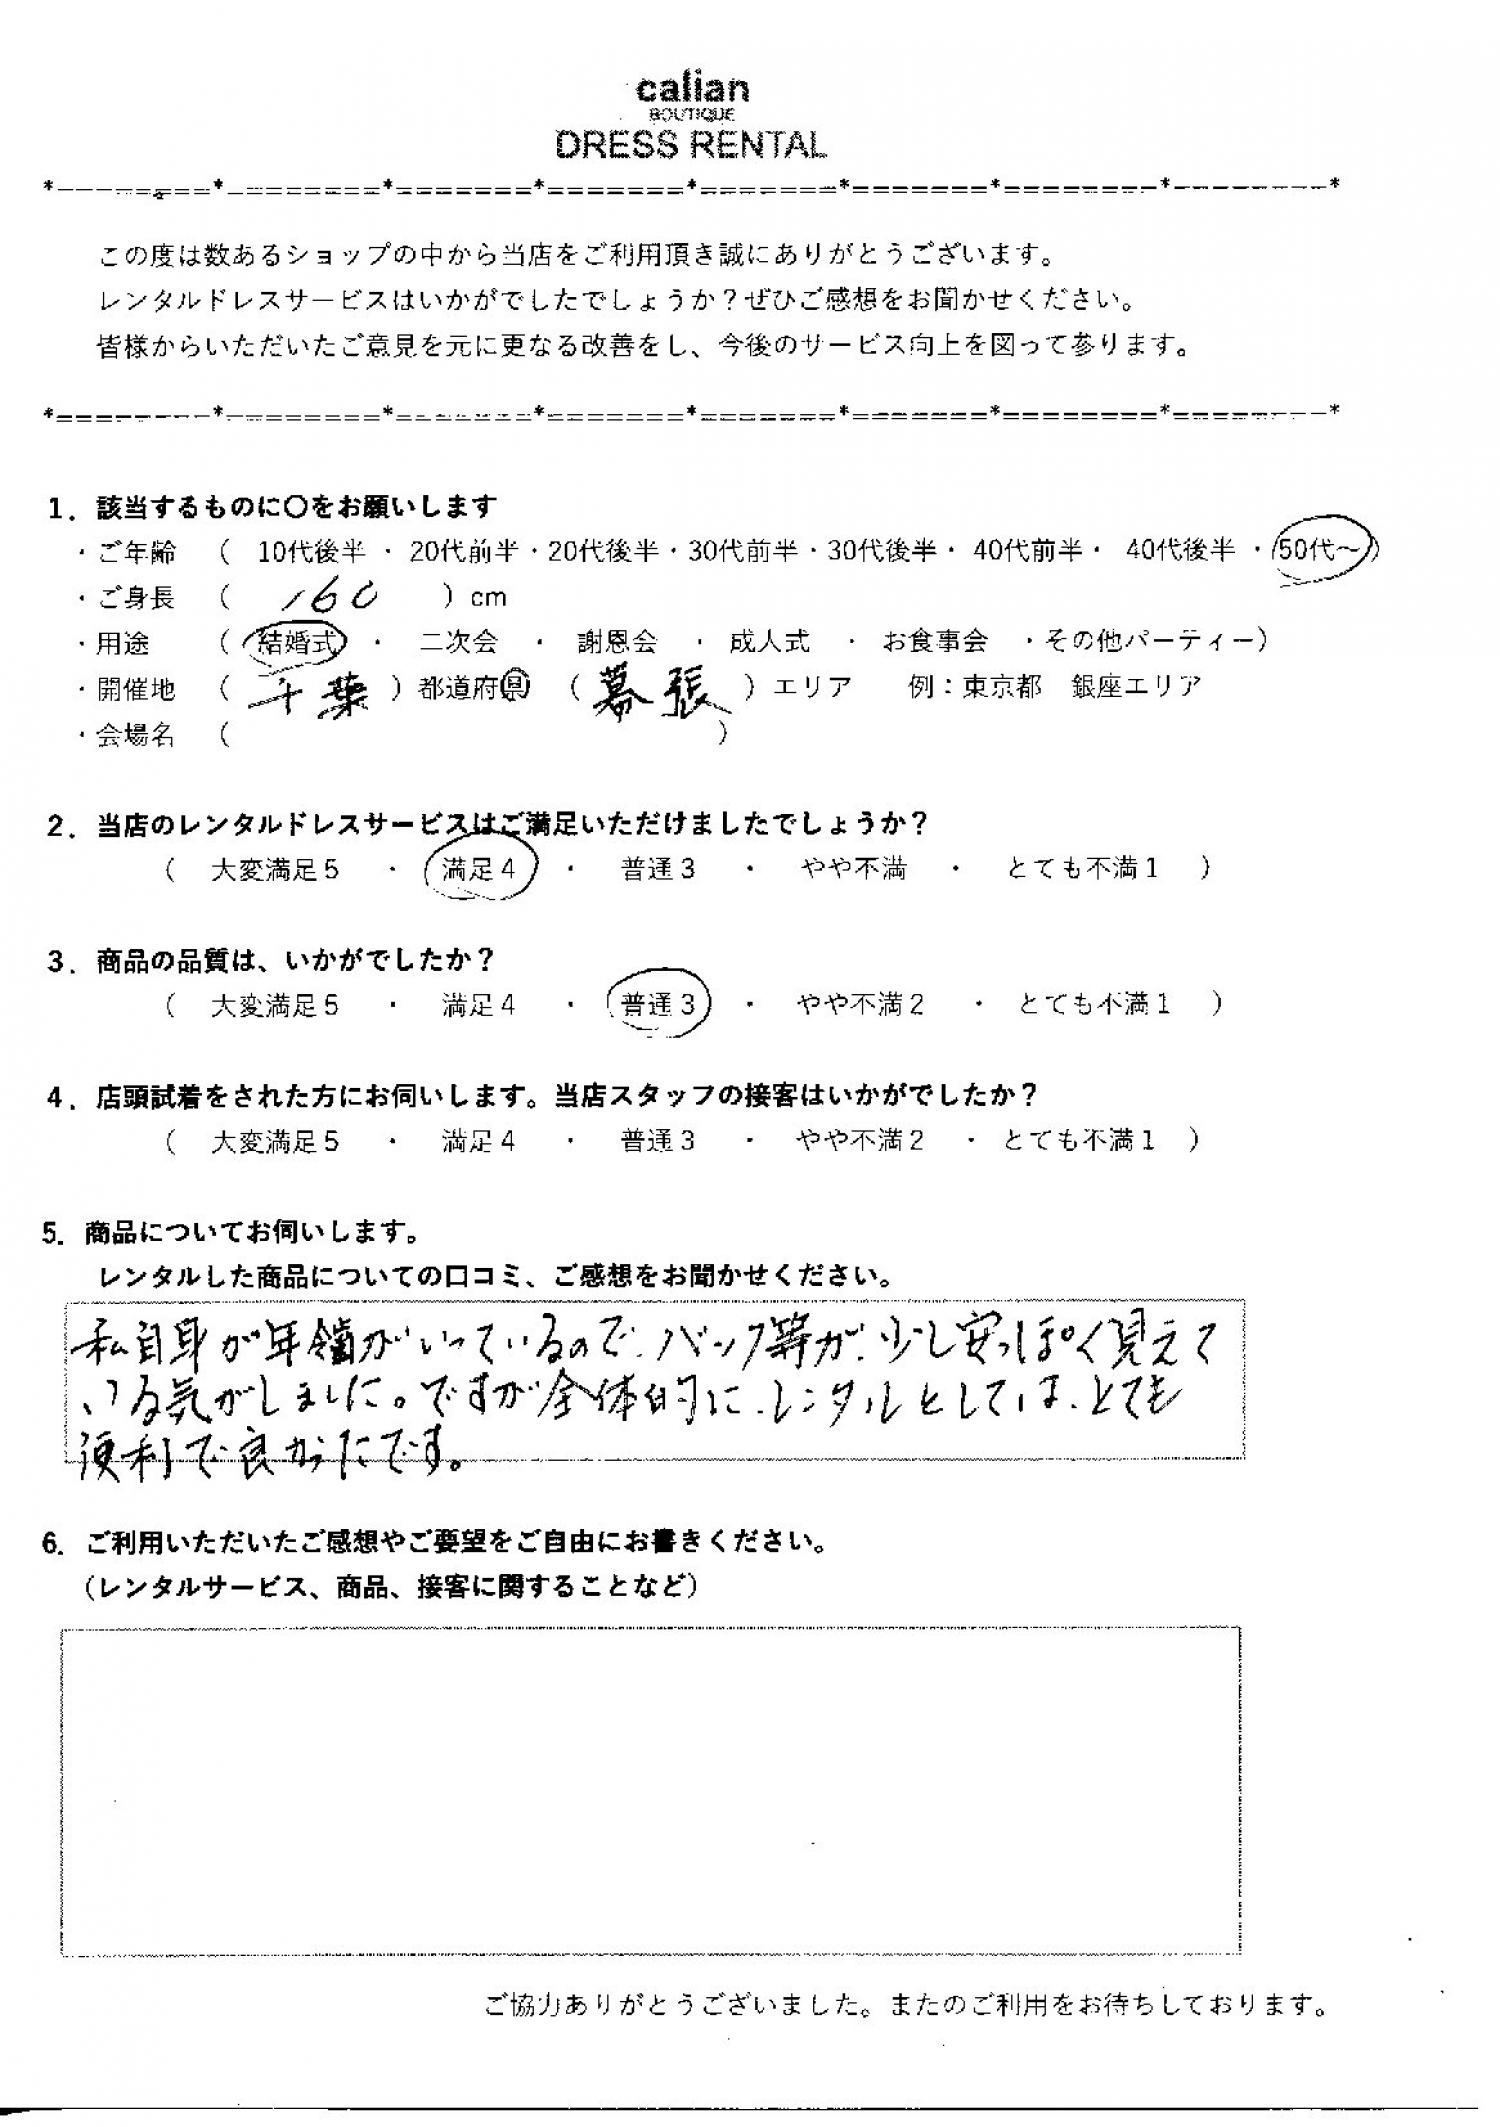 calian
BOUTIQUE
DRESS RENTAL
この度は数あるショップの中から当店をご利用頂き誠にありがとうございます。
レンタルドレスサービスはいかがでしたでしょうか？ぜひご感想をお聞かせください。
皆様からいただいたご意見を元に更なる改善をし、今後のサービス向上を図って参ります。
1．該当するものに〇をお願いします
・ご年齢 （ 10代後半 ・ 20代前半・20代後半・30代前半・30代後半・ 40代前半・ 40代後半 ・50代～）
・ご身長 （ 160 ）cm
・用途 （ 結婚式 ・ 二次会 ・ 謝恩会 ・ 成人式 ・ お食事会 ・その他パーティー）
・開催地 （ 千葉 ）都道府県 （ 幕張 ）エリア 例：東京都 銀座エリア
・会場名 （ ）
2．当店のレンタルドレスサービスはご満足いただけましたでしょうか？
（ 大変満足５ ・ 満足４ ・ 普通３ ・ やや不満 ・ とても不満１ ）
3．商品の品質は、いかがでしたか？
（ 大変満足５ ・ 満足４ ・ 普通３ ・ やや不満２ ・ とても不満１ ）
4．店頭試着をされた方にお伺いします。当店スタッフの接客はいかがでしたか？
（ 大変満足５ ・ 満足４ ・ 普通３ ・ やや不満２ ・ とても不満１ ）
5．商品についてお伺いします。
レンタルした商品についての口コミ、ご感想をお聞かせください。
私自身が年齢がいっているので、バック等が、少し安っぽく見えて
いる気がしました。ですが全体的に、レンタルとしては、とても
便利で良かったです。
6．ご利用いただいたご感想やご要望をご自由にお書きください。
（レンタルサービス、商品、接客に関することなど）
ご協力ありがとうございました。またのご利用をお待ちしております。